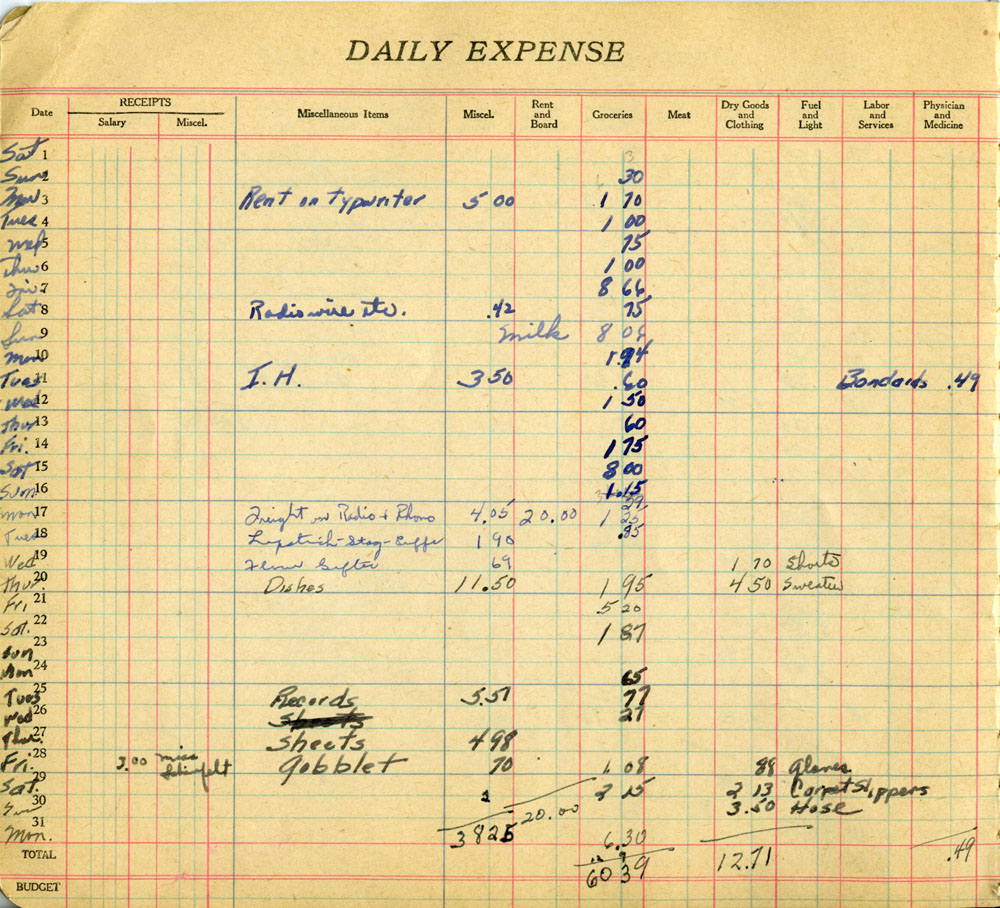 DAILY EXPENSE
Date RECEIPTS Salary Miscel. Miscellaneous Items Miscel. Rent and Board Groceries Meat Dry Goods and Clothing Fuel and Light Labor and Services Physician and Medicine
Sat 1
Sun 2 30
Mon 3 Rent on typwriter 5 00 1 70
Tues 4 1 00
Wed 5 75
Thur 6 1 00
Fri 7 8 66
Sat 8 Radio wire etc. .42 75
Sun 9 milk 8
Mon 10 1.94
Tues 11 I. H. 3 50 .60 Bandaids .49
Wed 12 1 50
Thur 13 60
Fri. 14 1 75
Sat 15 8 00
Sun 16 1.15
Mon 17 Frieght on Radio + Phono 4.05 20.00 1 25
Tues 18 1 90 .85
Wed 19 Flour Sifter 69 1 70 Shorts
Thur. 20 Dishes 11.50 1 95 4 50 Sweater
Fri, 21 5 20
Sat. 22 1 87
Sun 23
Mon 24 65
Tues 25 Records 5.51 77
Wed 26 Sheets 27
Thur. 27 Sheets 4 98
Fri. 28 3.00 miss gobblet 70 1.08 88 Gloves
Sat. 29 2 15 2 13 Carpet Slippers
Sun 30 3.50 Hose
Mon. 31 38 25 20.00 6.30
TOTAL 60 39 12.71 .49
BUDGET